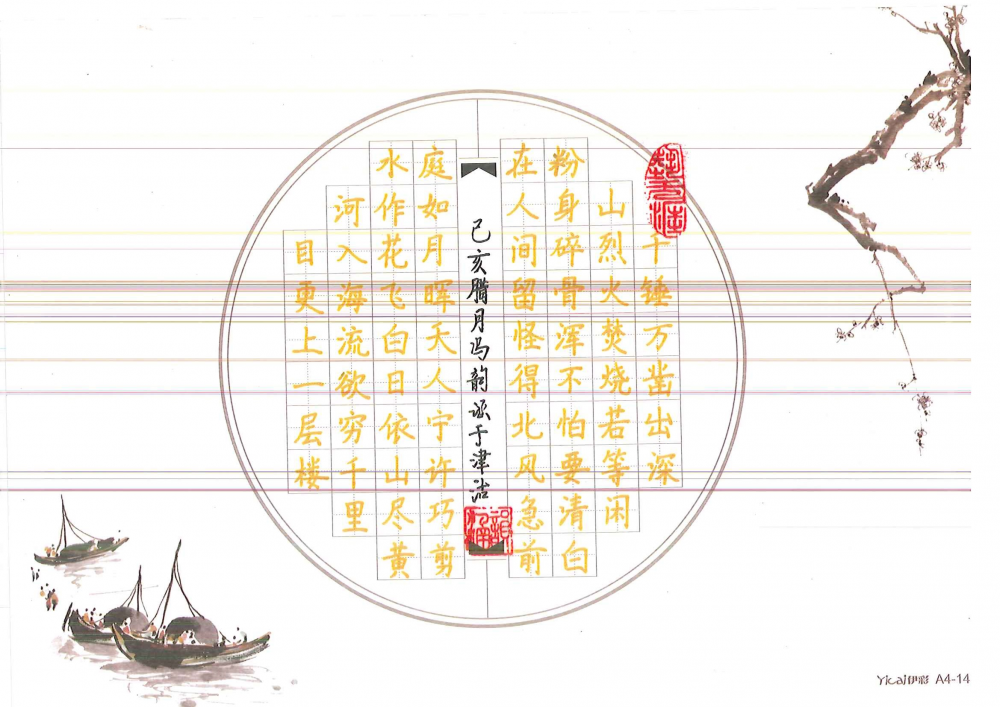 千锤万凿出深
山烈火焚烧若等闲
粉身碎骨浑不怕要清白
在人间留怪得北风急前
己亥腊月冯韵于津沽
庭如月晖天人宁许巧剪
水作花飞白日依山尽黄
河入海流欲穷千里
目更上一层楼
Yicai伊彩 A4-14